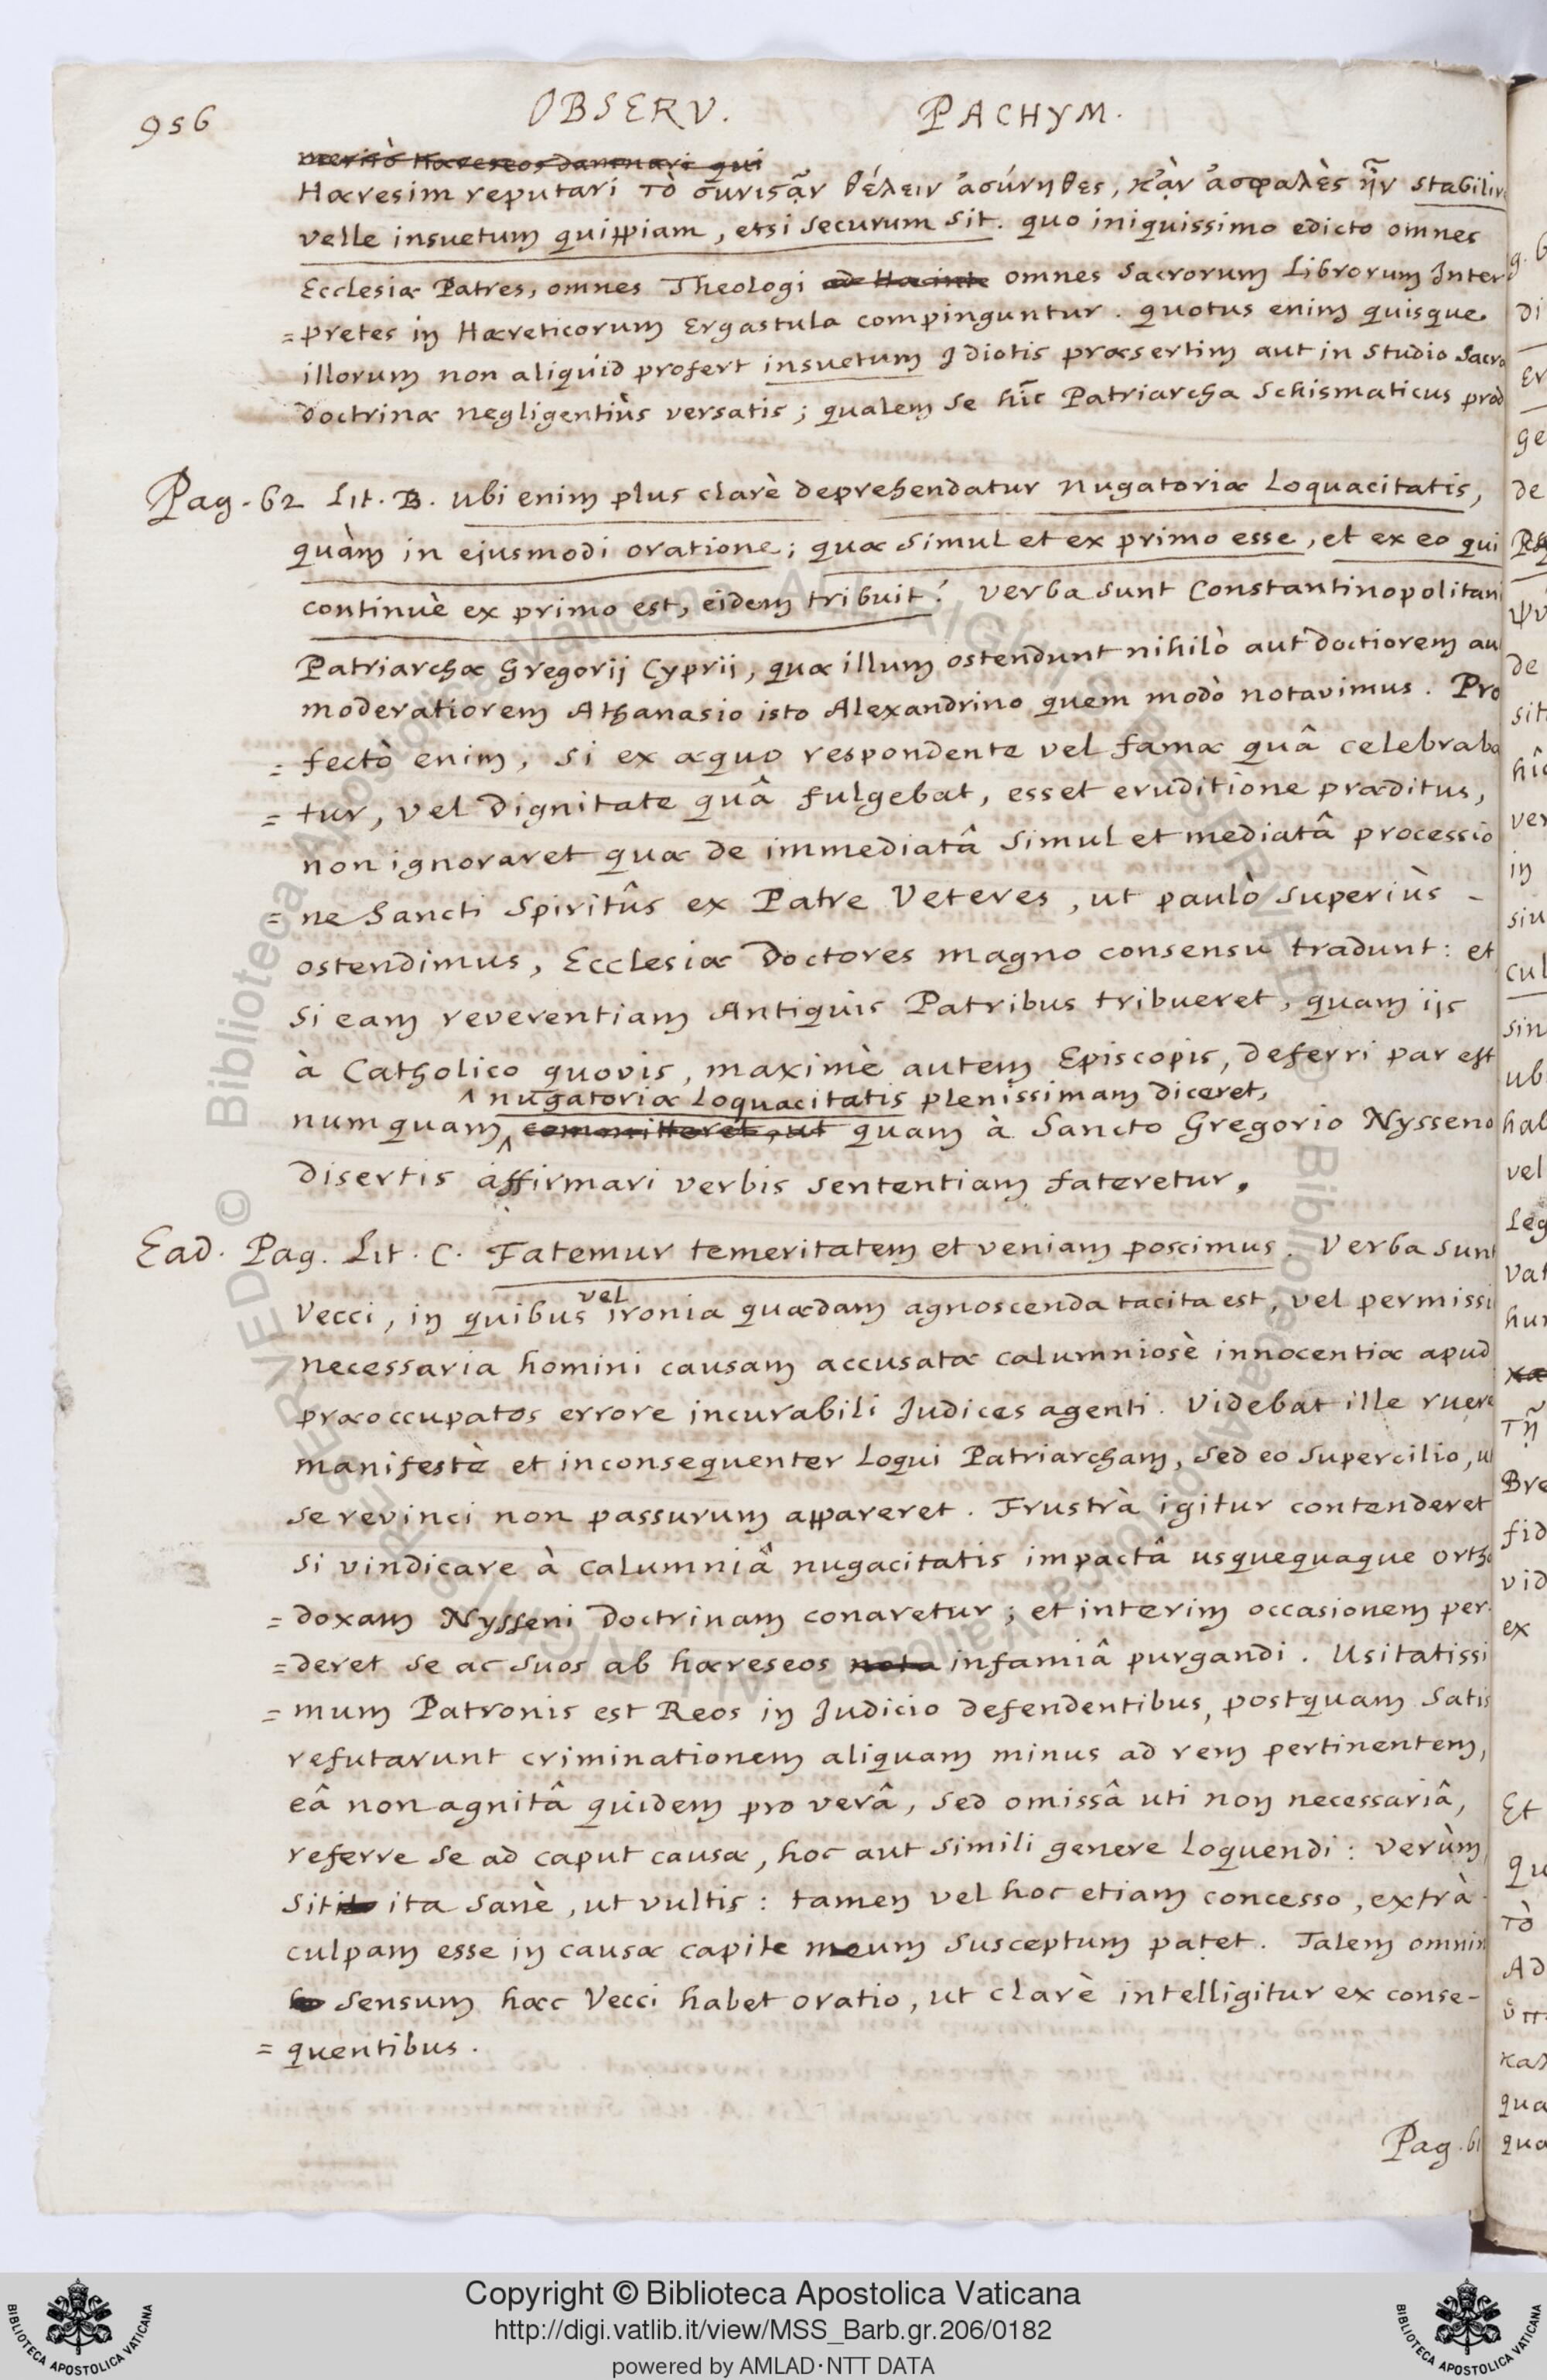 956 OBSERV. PACHYM.
meritò Hæreseos damnari qui
Hæresim reputari τὸ συνιστᾷν θέλειν ἀσύνηθες, κἂν ἀσφαλὲς ἦν stabilire
velle insuetum quippiam, etsi securum sit. quo iniquissimo edicto omnes
Ecclesiæ Patres, omnes Theologi omnes Sacrorum Librorum Inter
= pretes in Hæreticorum Ergastula compinguntur. quotus enim quisque
illorum non aliquid profert insuetum Idiotis præsertim aut in studio Sacræ
doctrinæ negligentiùs versatis; qualem se hîc Patriarcha Schismaticus prod
Pag. 62 Lit. B. ubi enim plus clarè deprehendatur nugatoriæ Loquacitatis,
quàm in ejusmodi oratione; quæ simul et ex primo esse, et ex eo qui
continuè ex primo est, eidem tribuit? verba sunt Constantinopolitani
Patriarchæ Gregorij Cyprij, quæ illum ostendunt nihilò aut doctiorem au
moderatiorem Athanasio isto Alexandrino quem modò notavimus. Pro
= fectò enim, si ex æquo respondente vel famæ quâ celebraba
= tur, vel dignitate quâ fulgebat, esset eruditione præditus,
non ignoraret quæ de immediatâ simul et mediatâ processio
= ne Sancti Spiritûs ex Patre Veteres, ut paulò superiùs -
ostendimus, Ecclesiæ Doctores magno consensu tradunt: et
si eam reverentiam Antiquis Patribus tribueret, quam ijs
à Catholico quovis, maximè autem Episcopis, deferri par est
^ nugatoriæ Loquacitatis plenissimam diceret,
numquam ^ committeret, ut quam à Sancto Gregorio Nysseno
disertis affirmari verbis sententiam fateretur.
Ead. Pag. Lit. C. Fatemur temeritatem et veniam poscimus. Verba sunt
vel
Vecci, in quibus ironia quædam agnoscenda tacita est, vel permissi
necessaria homini causam accusatæ calumniosè innocentiæ apud
præoccupatos errore incurabili Judices agenti. Videbat ille ruere
manifestè et inconsequenter Loqui Patriarcham, sed eo supercilio, u
se revinci non passurum appareret. Frustrà igitur contenderet
si vindicare à calumniâ nugacitatis impactâ usquequaque ortho
= doxam Nysseni Doctrinam conaretur; et interim occasionem per
= deret se ac suos ab hæreseos nota infamiâ purgandi. Usitatissi
= mum Patronis est Reos in Judicio defendentibus, postquam satis
refutarunt criminationem aliquam minus ad rem pertinentem,
eâ non agnitâ quidem pro verâ, sed omissâ uti non necessariâ,
referre se ad caput causæ, hoc aut simili genere Loquendi: verùm
sit ita sanè, ut vultis: tamen vel hoc etiam concesso, extrà
culpam esse in causæ capite meum susceptum patet. Talem omnin
sensum hæc Vecci habet oratio, ut clarè intelligitur ex conse-
= quentibus.
Pag. 61
Copyright © Biblioteca Apostolica Vaticana
http://digi.vatlib.it/view/MSS_Barb.gr.206/0182
powered by AMLAD·NTT DATA
BIBLIOTECA APOSTOLICA VATICANA
BIBLIOTECA APOSTOLICA VATICANA